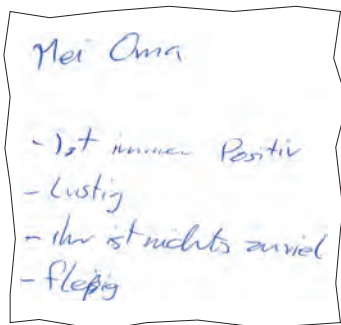 Mei Oma
- Ist immer Positiv
- Lustig
- ihr ist nichts zuviel
- fleßig